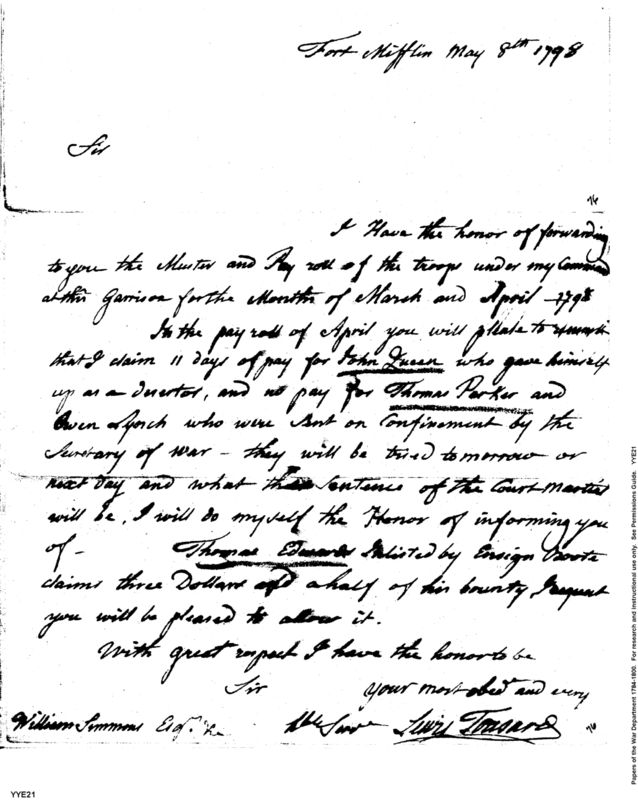 Fort Mifflin May 8th 1798
Sir
I Have the honor of forwarding
to you the Muster and Pay roll of the troops under my Command
at this Garrison for the Months of March and April - 1798
In the pay roll of April you will please to remark
that I claim 11 days of pay for John Queen who gave himself
up as a desertor, and no pay for Thomas Parker and
Owen Lynch who were sent on Confinement by the
Secretary of war - they will be tried tomorrow or
next Day and what the Sentence of the Court Martial
will be, I will do myself the Honor of informing you
of - Thomas Edwards Inlisted by Ensign
claims three Dollars and a half of his bounty, I request
you will be pleased to allow it.
With great respect I have the honor to be
Sir your most obedt and very
William Simmons Esqr Hble Servt Lewis Tousard
Papers of the War Department 1784-1800. For research and instructional use only. See Permissions Guide. YYE21
YYE21